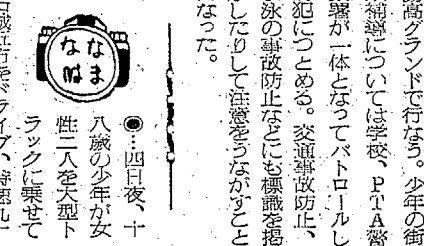 高グランドで行なう。少年の街
補導については学校、PTA警
署が一体となってパトロールし
犯につとめる。交通事故防止、
泳の事故防止などにも標識を掲
したりして注意をうながすこと
なった。
なま
なは
◉…四日夜、十
八歳の少年が女
性二人を大型ト
ラックに乗せて
をドライブ、時速九十